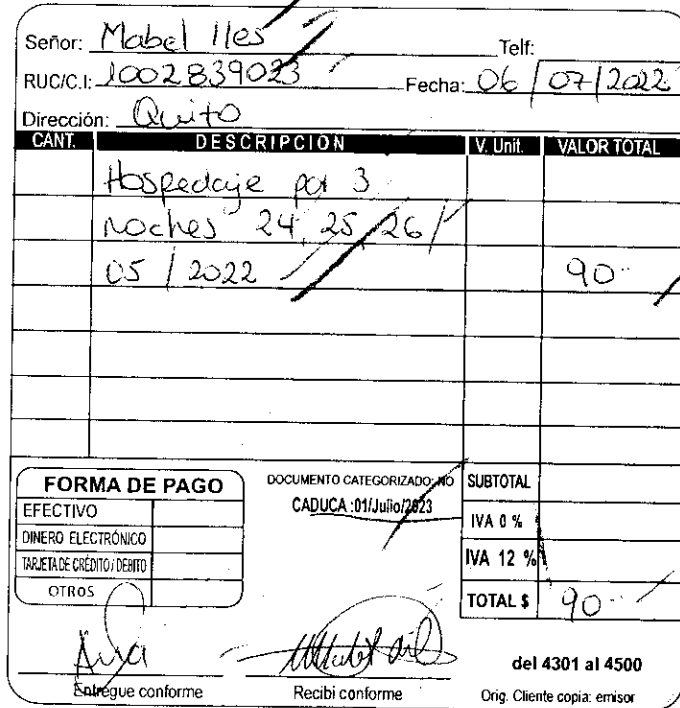 Señor: Mabel Iles Telf:
RUC/C.I: 1002839023 Fecha: 06/07/2022
Dirección: Quito
CANT. DESCRIPCION V. Unit. VALOR TOTAL
Hospedaje por 3
noches 24, 25, 26/
05/2022 90
FORMA DE PAGO
EFECTIVO
DINERO ELECTRÓNICO
TARJETA DE CRÉDITO / DÉBITO
OTROS
DOCUMENTO CATEGORIZADO: NO
CADUCA :01/Julio/2023
SUBTOTAL
IVA 0 %
IVA 12 %
TOTAL $ 90
Entregue conforme
Recibi conforme
del 4301 al 4500
Orig. Cliente copia: emisor